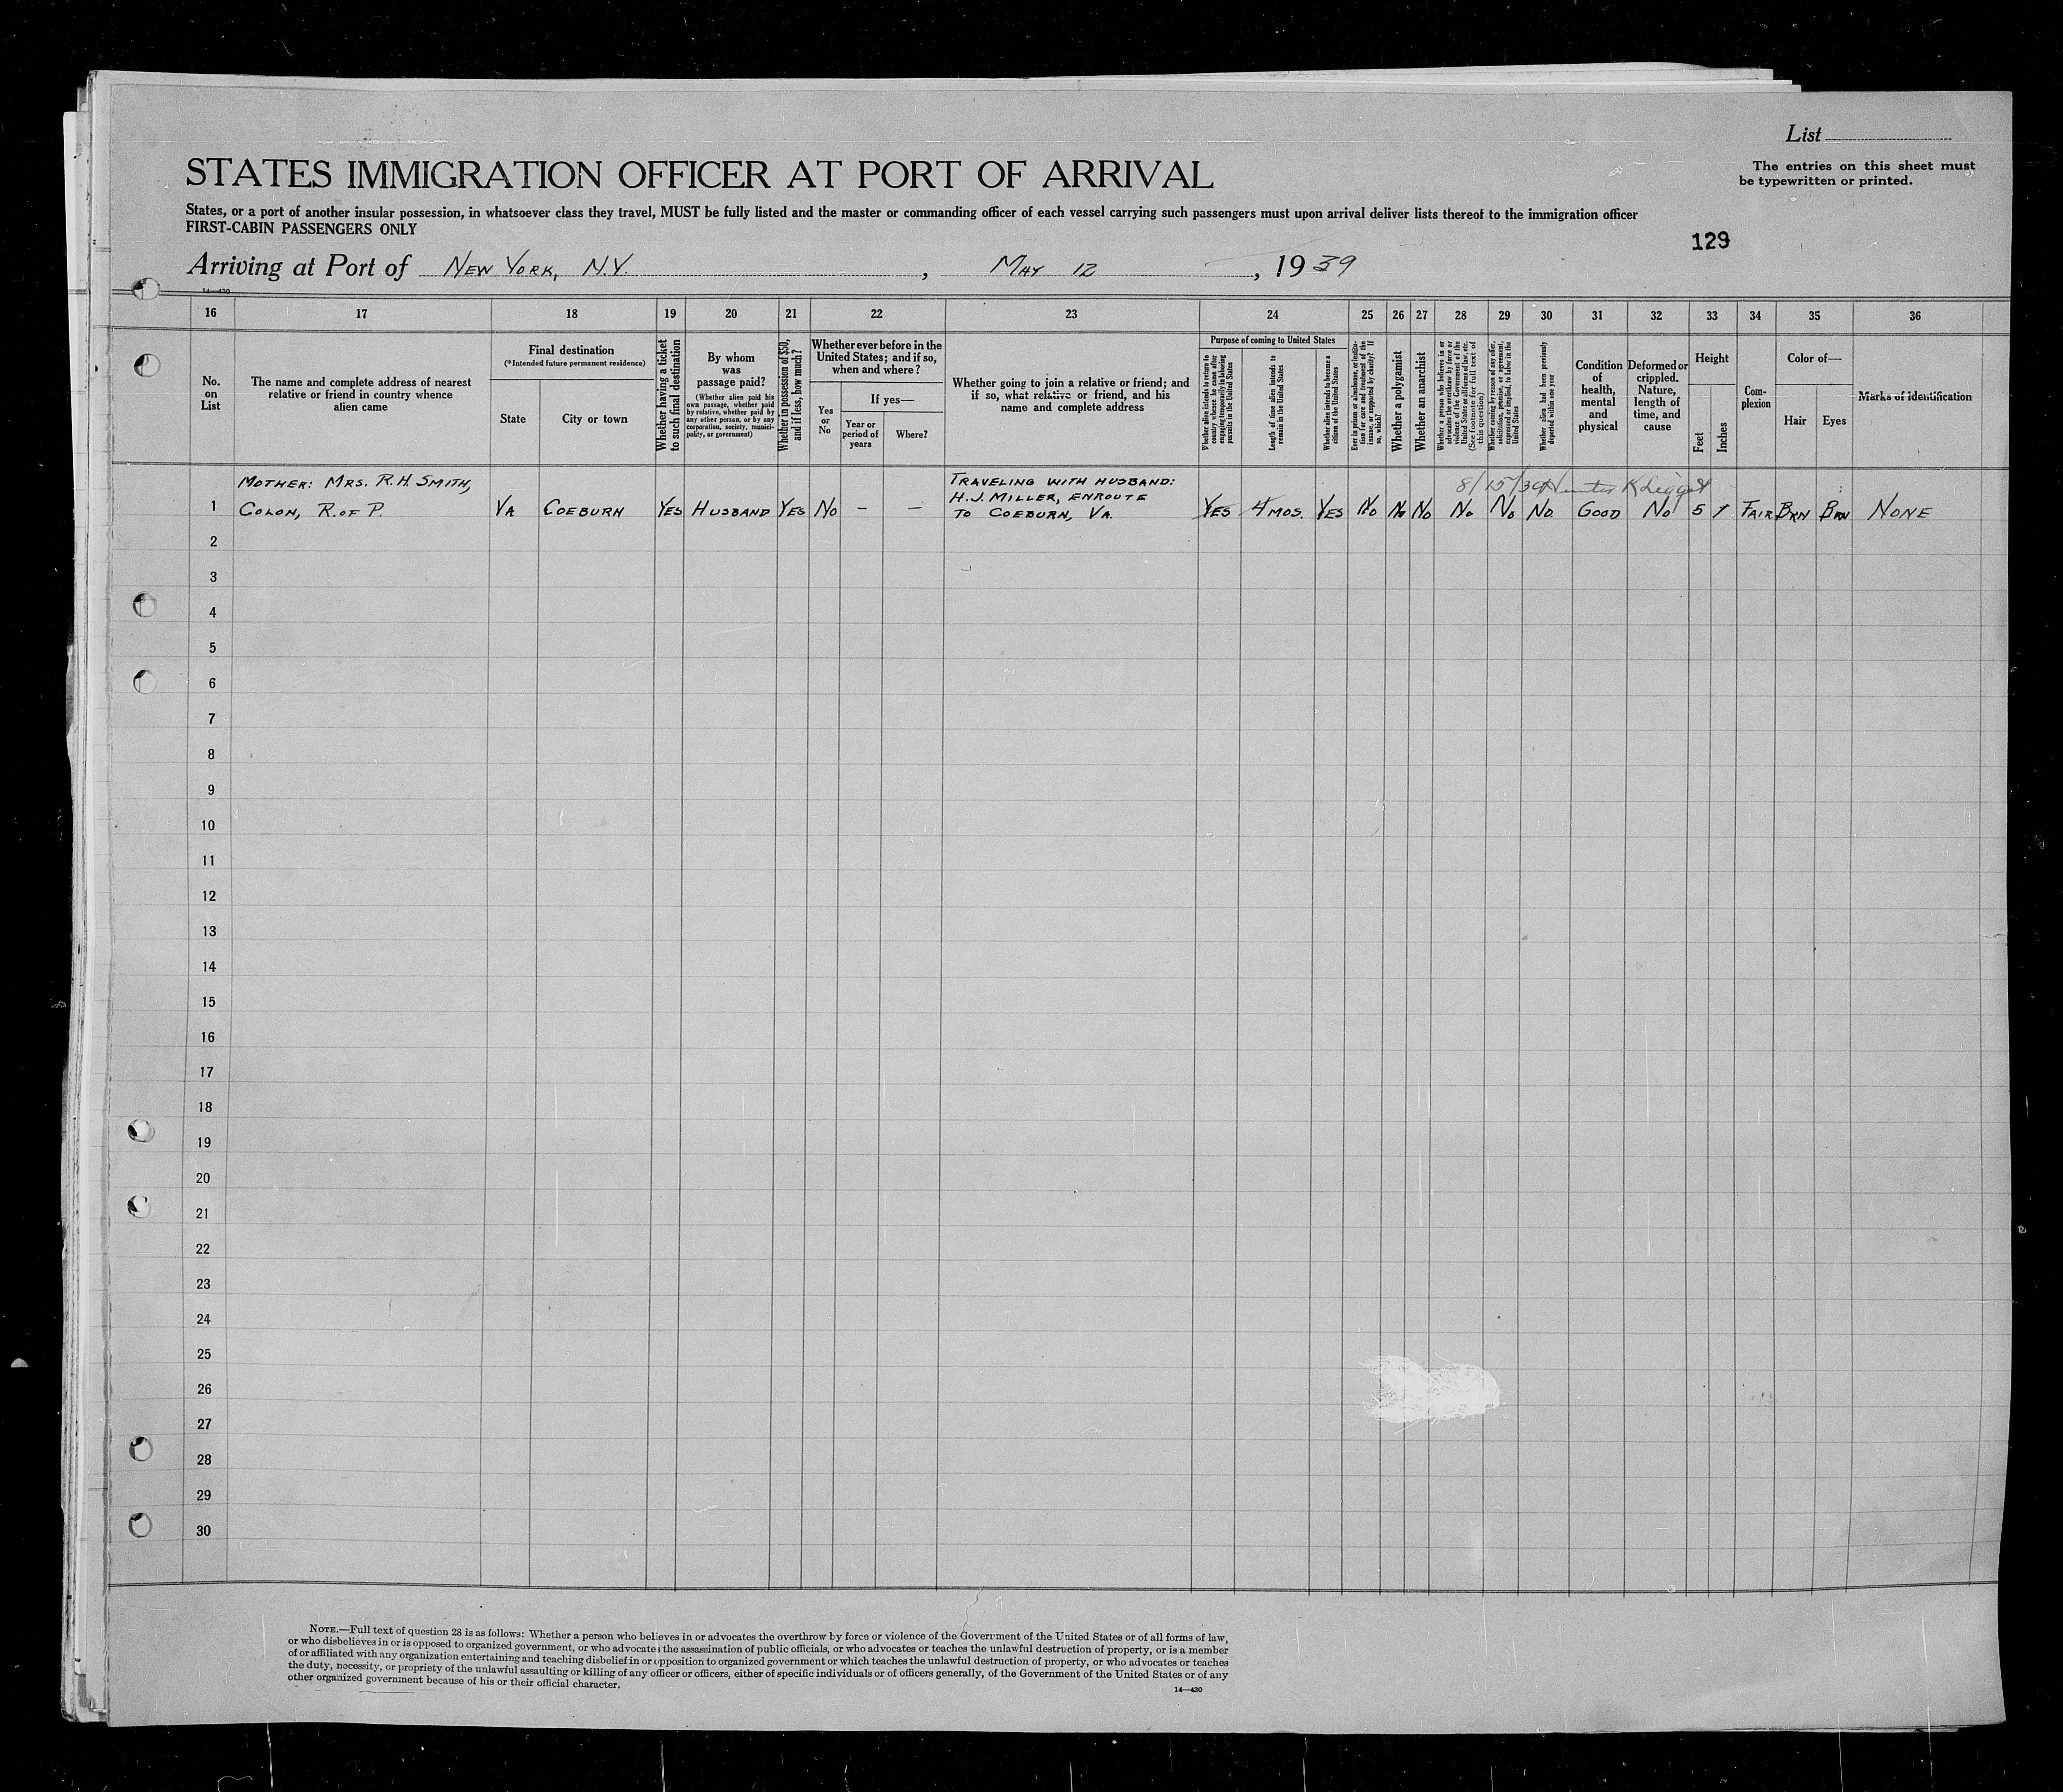 List
The entries on this sheet must
be typewritten or printed.
STATES IMMIGRATION OFFICER AT PORT OF ARRIVAL
States, or a port of another insular possession, in whatsoever class they travel, MUST be fully listed and the master or commanding officer of each vessel carrying such passengers must upon arrival deliver lists thereof to the immigration officer
FIRST-CABIN PASSENGERS ONLY
129
Arriving at Port of NEW YORK, N.Y. , MAY 12 , 1939
14—430
16 17 18 19 20 21 22 23 24 25 26 27 28 29 30 31 32 33 34 35 36
No.
on
List
The name and complete address of nearest
relative or friend in country whence
alien came
Final destination
(*Intended future permanent residence)
State
City or town
Whether having a ticket
to such final destination
By whom
was
passage paid?
(Whether alien paid his
own passage, whether paid
by relative, whether paid by
any other person, or by any
corporation, society, munici-
pality, or government)
Whether in possession of $50,
and if less, how much?
Whether ever before in the
United States; and if so,
when and where?
Yes
or
No
If yes—
Year or
period of
years
Where?
Whether going to join a relative or friend; and
if so, what relative or friend, and his
name and complete address
Purpose of coming to United States
Whether alien intends to return to
country whence he came after
engaging temporarily in laboring
pursuits in the United States
Length of time alien intends to
remain in the United States
Whether alien intends to become a
citizen of the United States
Ever in prison or almshouse, or institu-
tion for care and treatment of the
insane, or supported by charity? If
so, which?
Whether a polygamist
Whether an anarchist
Whether a person who believes in or
advocates the overthrow by force or
violence of the Government of the
United States or all forms of law, etc.
(See footnote for full text of
this question)
Whether coming by reason of any offer,
solicitation, promise, or agreement,
expressed or implied, to labor in the
United States
Whether alien had been previously
deported within one year
Condition
of
health,
mental
and
physical
Deformed or
crippled.
Nature,
length of
time, and
cause
Height
Feet
Inches
Com-
plexion
Color of—
Hair
Eyes
Marks of identification
MOTHER: MRS. R.H. SMITH, TRAVELING WITH HUSBAND:
8/15/39
H.J. MILLER, ENROUTE
1 COLON, R. OF P. VA COEBURN YES HUSBAND YES NO – – TO COEBURN, VA. YES 4 MOS. YES NO NO NO NO NO NO GOOD NO 5 FAIR BRN BRN NONE
2
3
4
5
6
7
8
9
10
11
12
13
14
15
16
17
18
19
20
21
22
23
24
25
26
27
28
29
30
NOTE.—Full text of question 28 is as follows: Whether a person who believes in or advocates the overthrow by force or violence of the Government of the United States or of all forms of law,
or who disbelieves in or is opposed to organized government, or who advocates the assassination of public officials, or who advocates or teaches the unlawful destruction of property, or is a member
of or affiliated with any organization entertaining and teaching disbelief in or opposition to organized government or which teaches the unlawful destruction of property, or who advocates or teaches
the duty, necessity, or propriety of the unlawful assaulting or killing of any officer or officers, either of specific individuals or of officers generally, of the Government of the United States or of any
other organized government because of his or their official character.
14—430